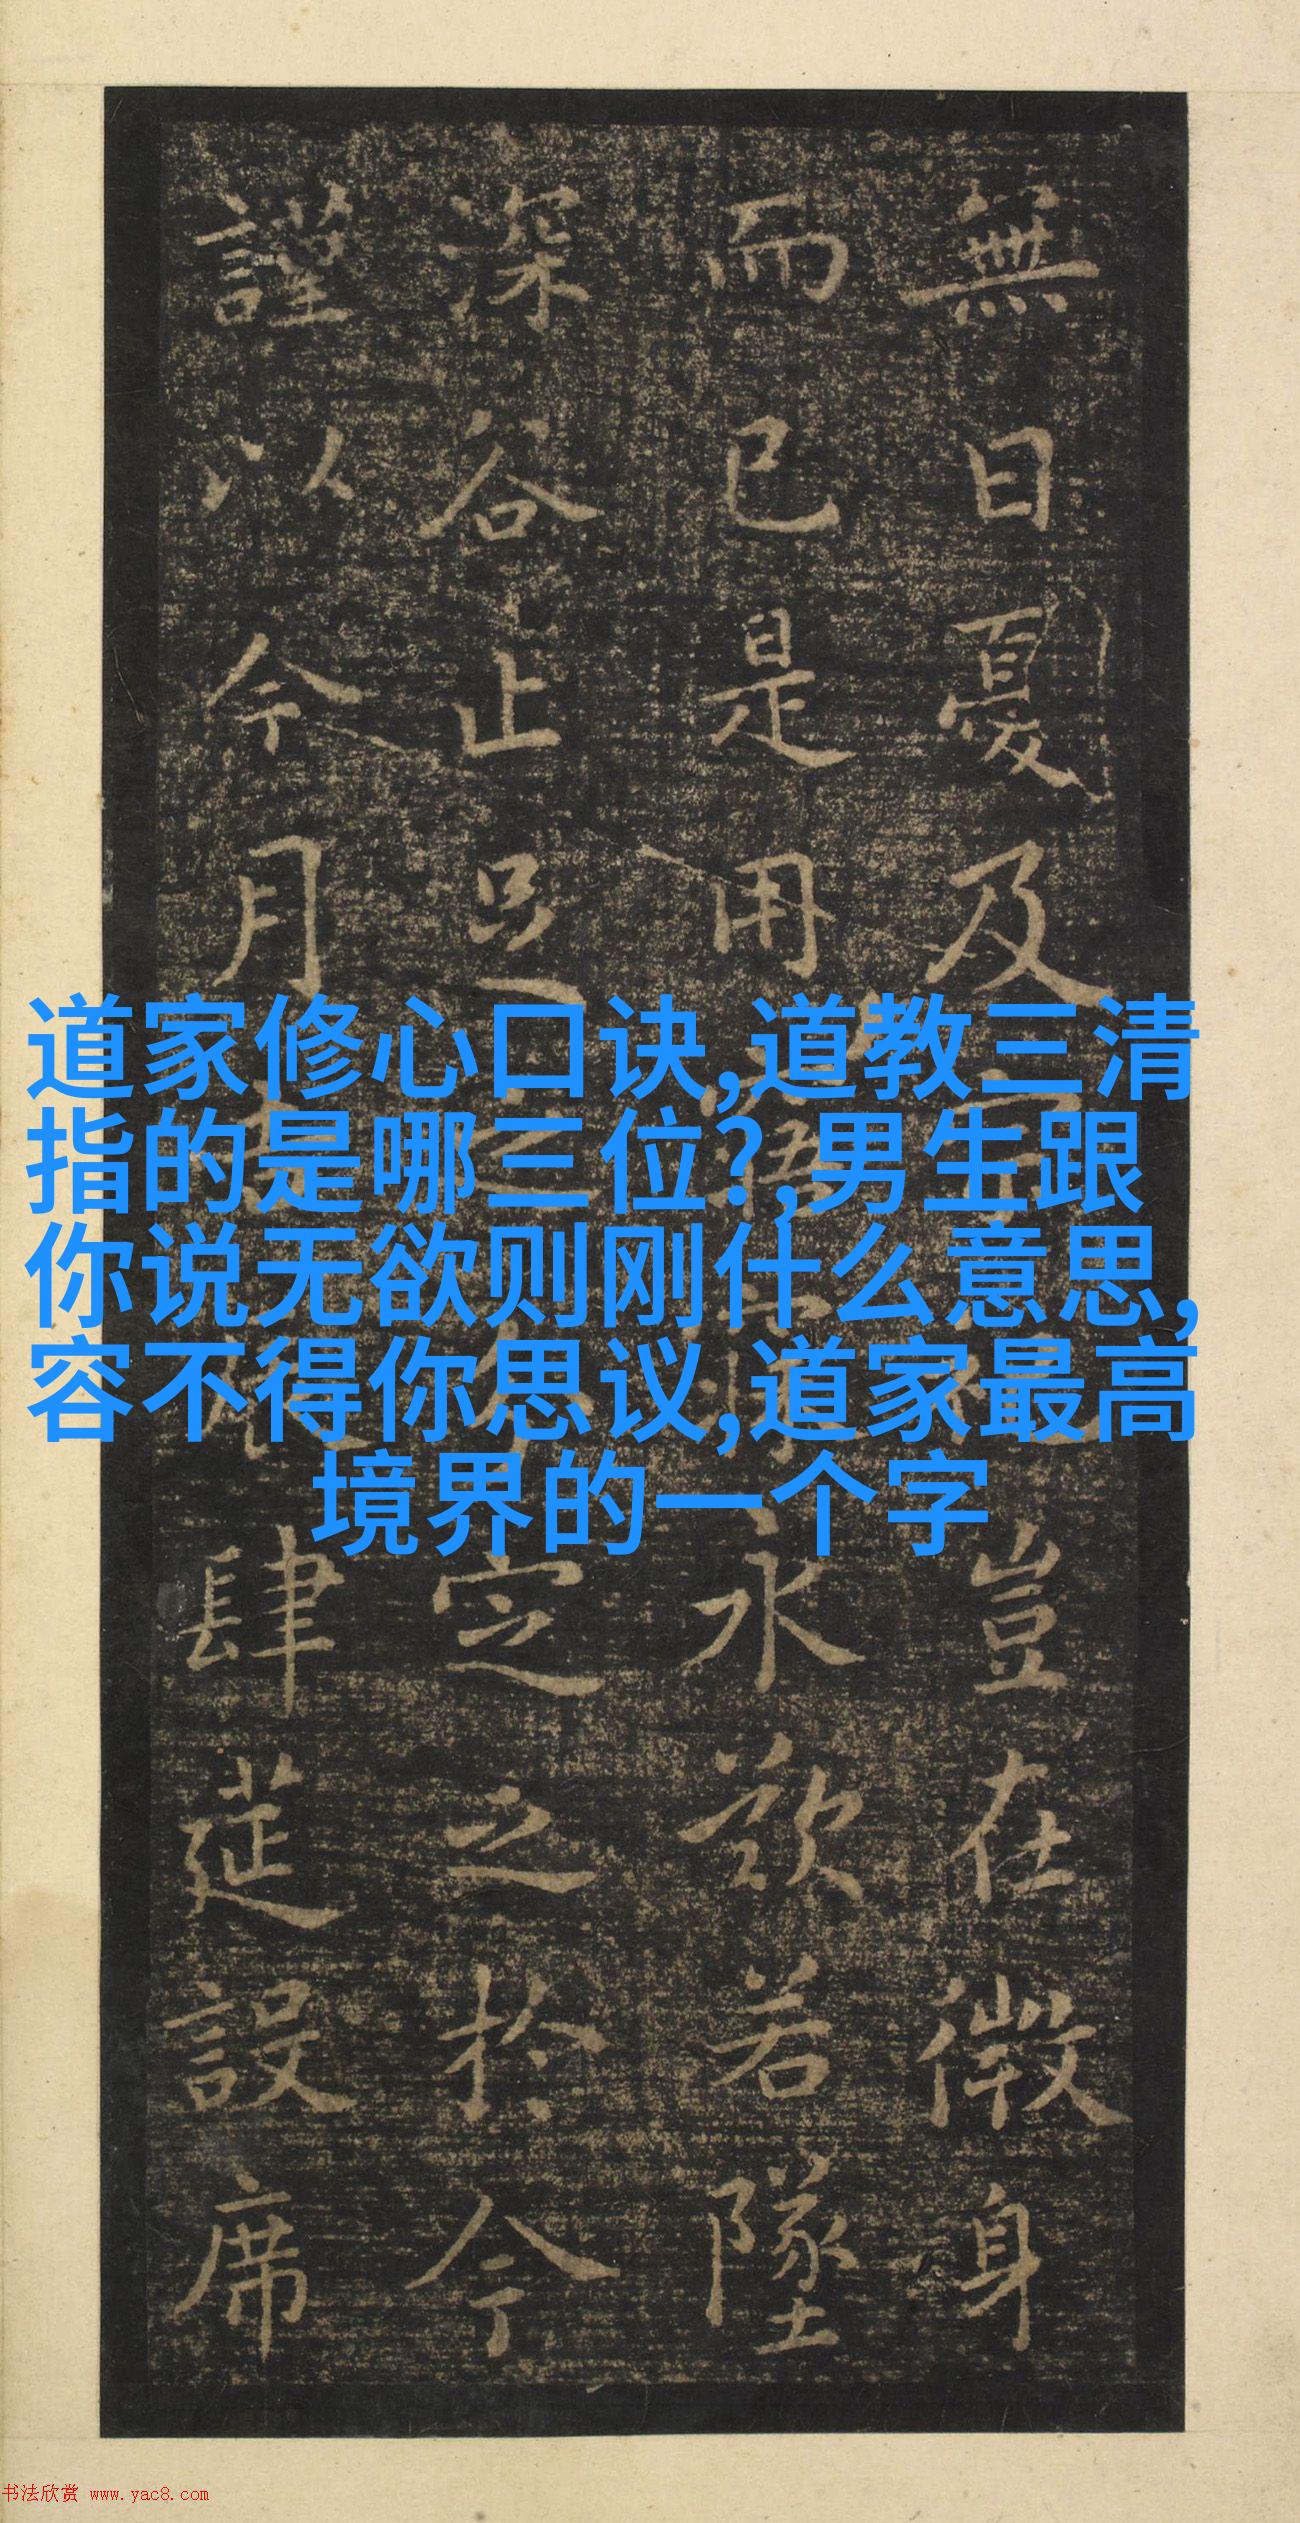 無日憂及
豈在微身
而已是用
永欲若墜
深谷止足之
定之於今
謹以今月
肆莚設席
道家修心口诀,道教三清
指的是哪三位?,男生跟
你说无欲则刚什么意思,
容不得你思议,道家最高
境界的一个字
书法欣赏 www.yac8.com